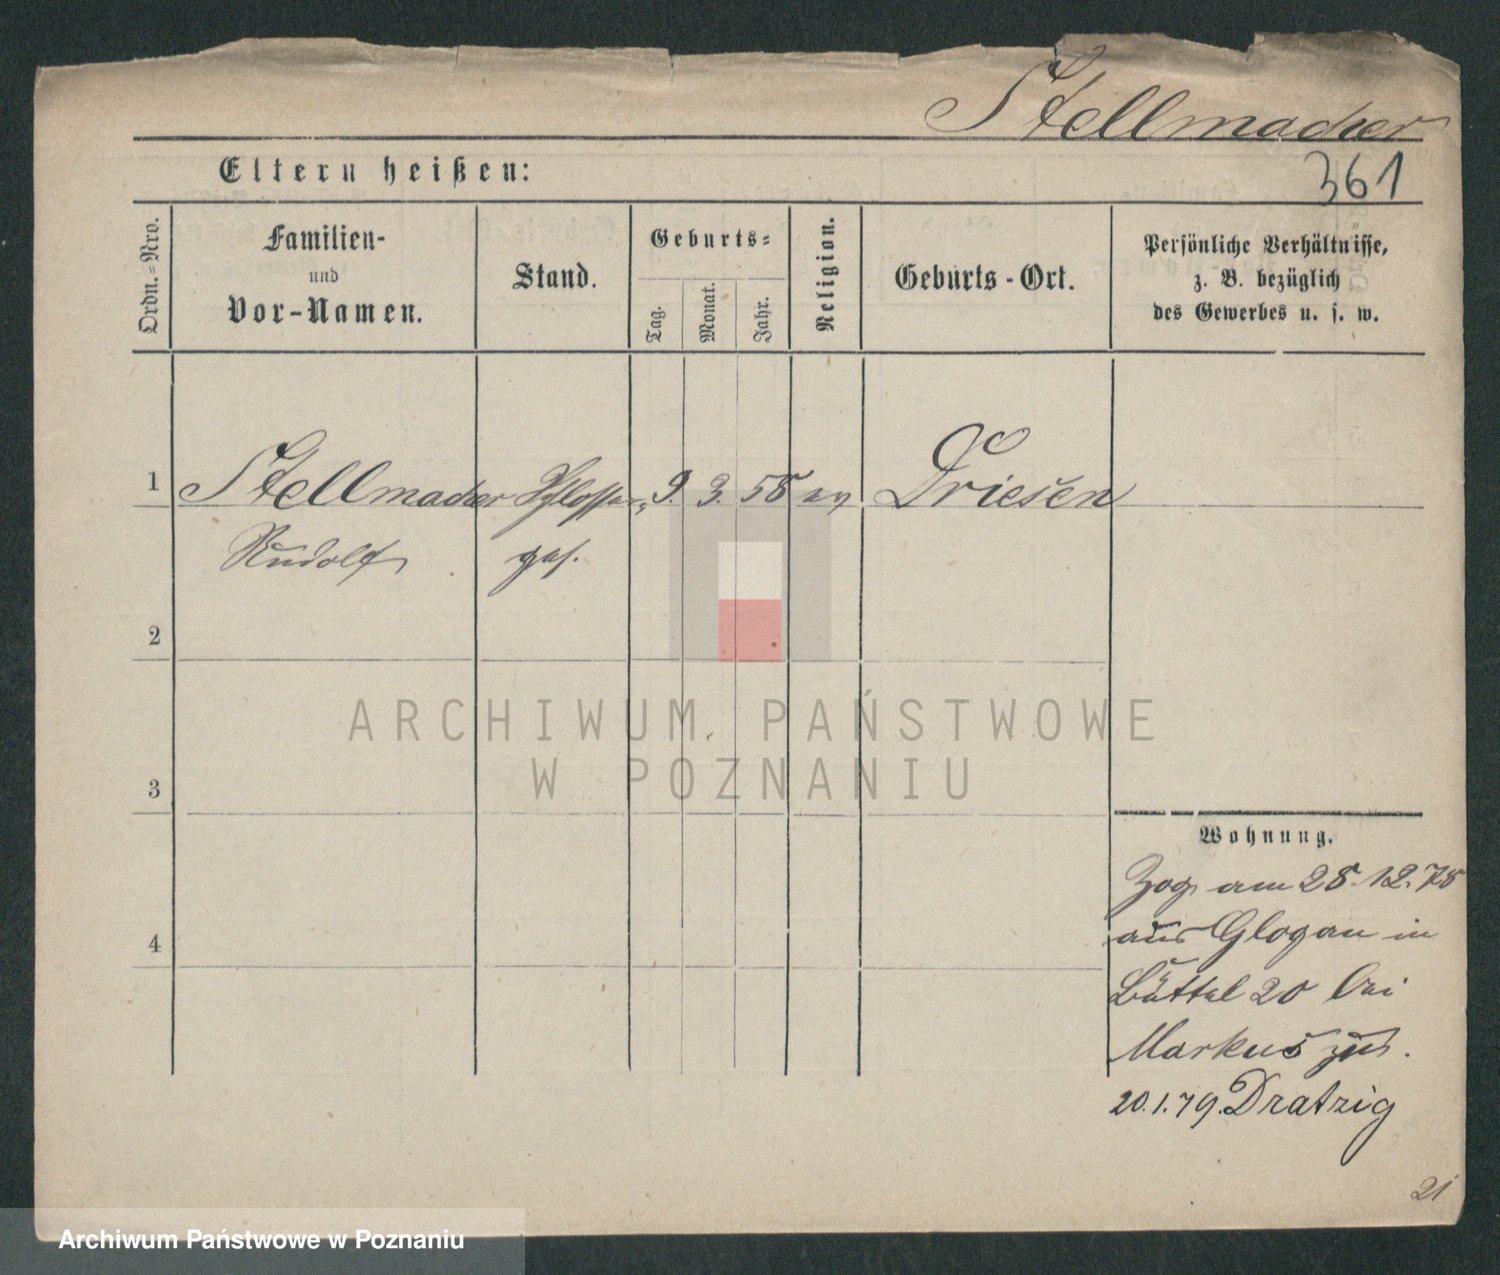 Stellmacher
Eltern heißen:
361
Ordn.=Nro.
Familien-
und
Vor-Namen.
Stand.
Geburts=
Tag.
Monat.
Jahr.
Religion.
Geburts-Ort.
Persönliche Verhältnisse,
z. B. bezüglich
des Gewerbes u. s. w.
1
Stellmacher Schlosser= 9. 3. 58 ev Driesen
Rudolf ges.
2
ARCHIWUM PAŃSTWOWE
W POZNANIU
3
Wohnung.
Zog am 28.12.78
aus Glogau in
Büttel 20 bei
Markus zu.
4
20.1.79. Dratzig
21
Archiwum Państwowe w Poznaniu